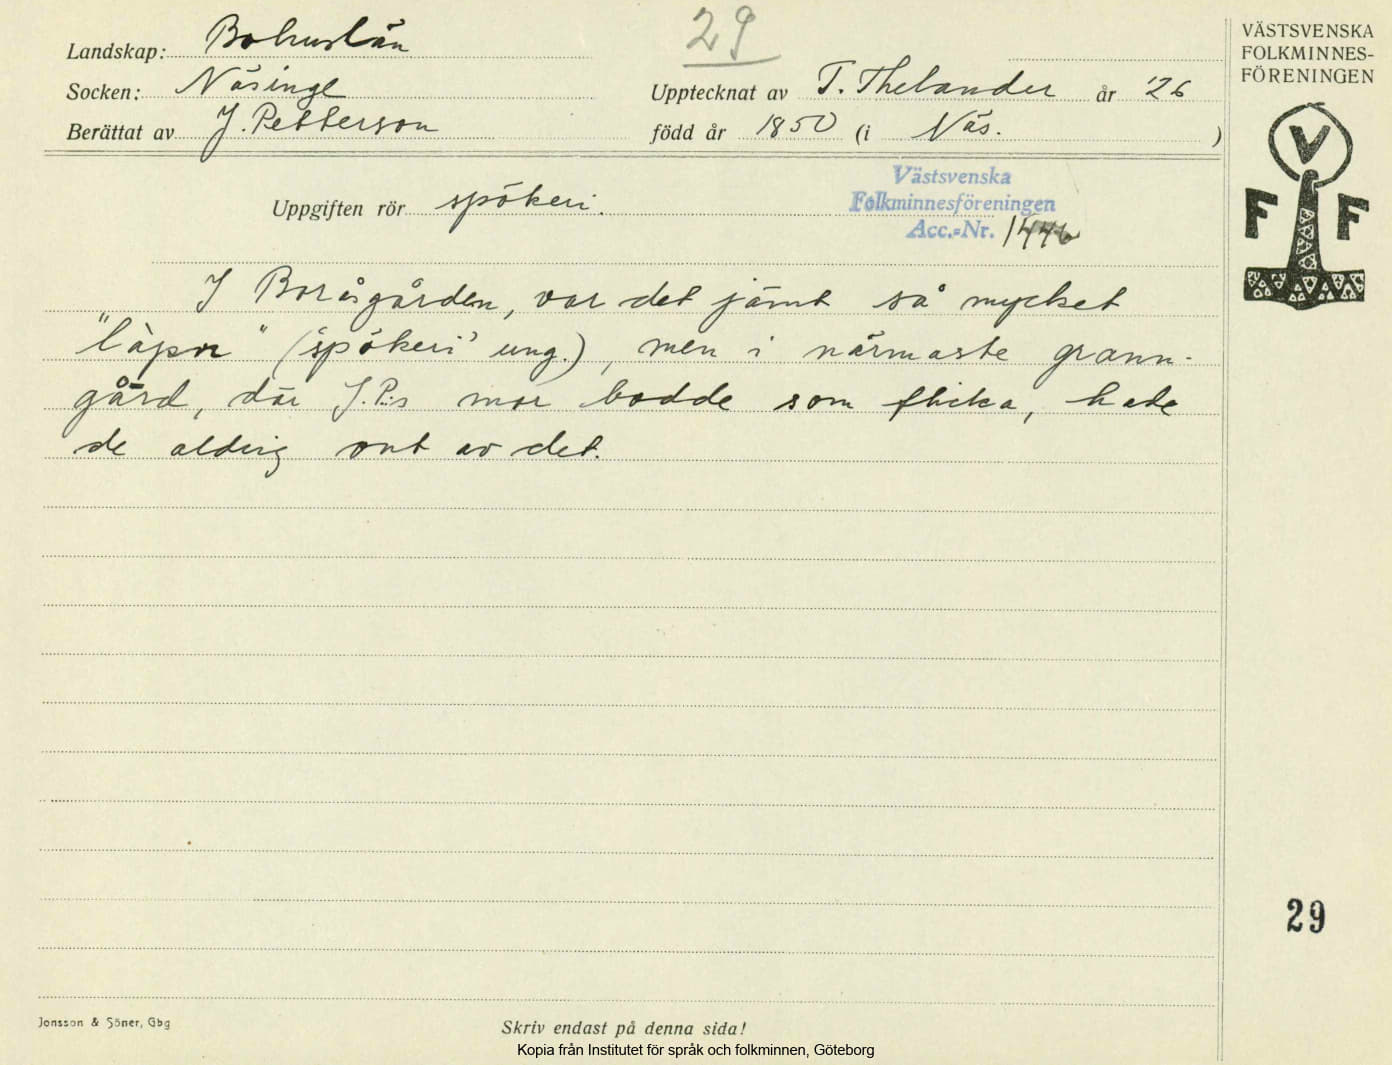 29
VÄSTSVENSKA
FOLKMINNES-
FÖRENINGEN
Landskap: Bohuslän
Socken: Näsinge
Upptecknat av T. Thelander år '26
Berättat av J. Petterson
född år 1850 (i Näs. )
V
F F
Västsvenska
Folkminnesföreningen
Acc.-Nr. 1446
Uppgiften rör spökeri.
I Boråsgården, var det jämt så mycket
"låpor" ('spökeri' ung.), men i närmaste grann-
gård, där J.P:s mor bodde som flicka, hade
de aldrig ont av det.
29
Jonsson & Söner, Gbg
Skriv endast på denna sida!
Kopia från Institutet för språk och folkminnen, Göteborg